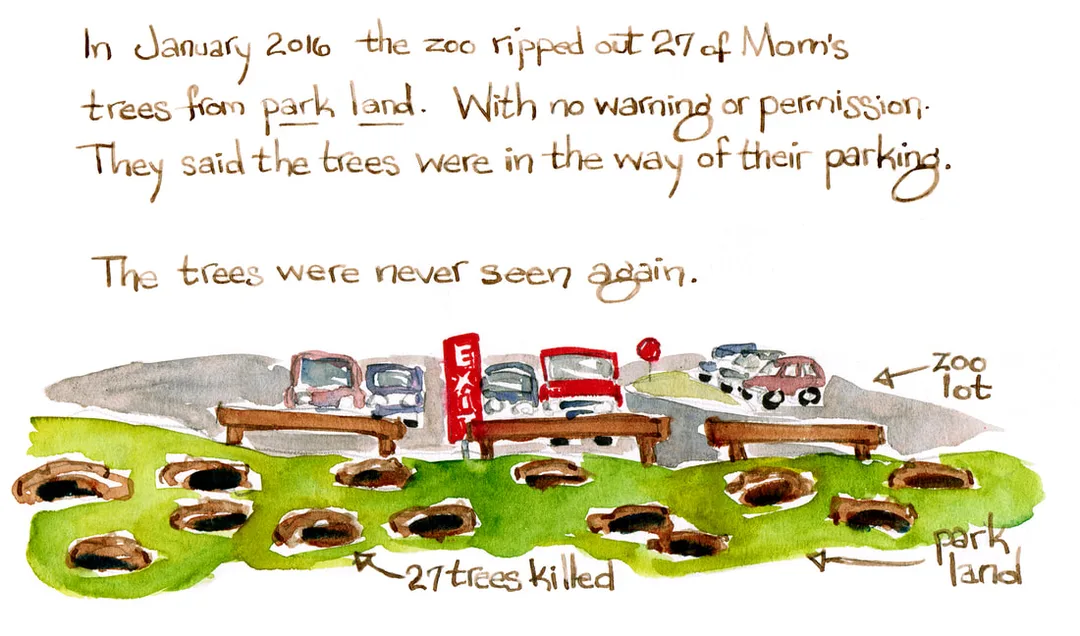 In January 2016 the zoo ripped out 27 of Mom's
trees from park land. With no warning or permission.
They said the trees were in the way of their parking.
The trees were never seen again.
EXIT
zoo
lot
park
land
27 trees killed